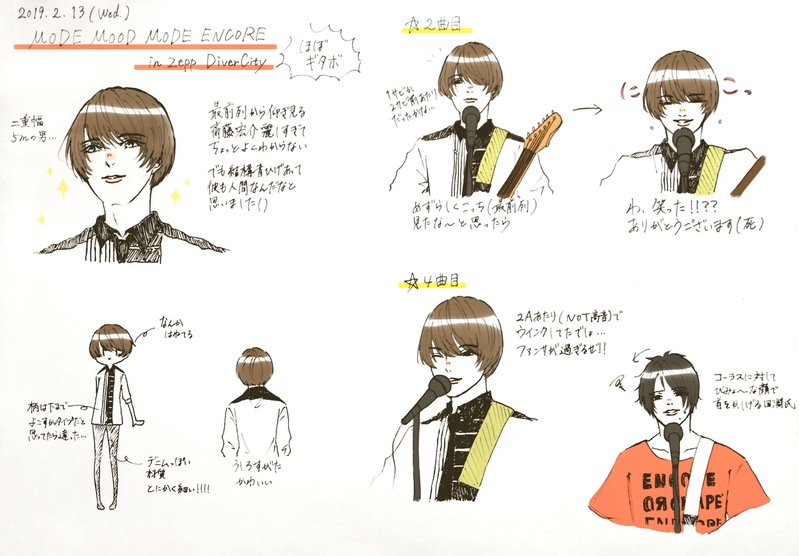 2019.2.13(Wed.)
MODE MOOD MODE ENCORE
in Zepp DiverCity
ほぼ
ギタボ
二重幅
5mmの男…
最前列から仰ぎ見る
斎藤宏介麗しすぎて
ちょっとよくわからない
でも結構青ひげあって
彼も人間なんだなと
思いました()
なんか
はねてる
柄は下まで
よこすかタイプだと
思ってたら違った…
デニムっぽい
材質
とにかく細い!!!!
うしろすがた
かわいい
☆2曲目
1サビか
2サビ前あたり
だったかな…
めずらしくこっち(最前列)
見たな〜と思ったら
にこっ
わ、笑った!!??
ありがとうございます(死)
☆4曲目
2Aあたり(NOT高音)で
ウインクしてたでしょ…
ファンサが過ぎるぜ!!
コーラスに対して
びみょ〜な顔で
首をかしげる田淵氏
ENCORE